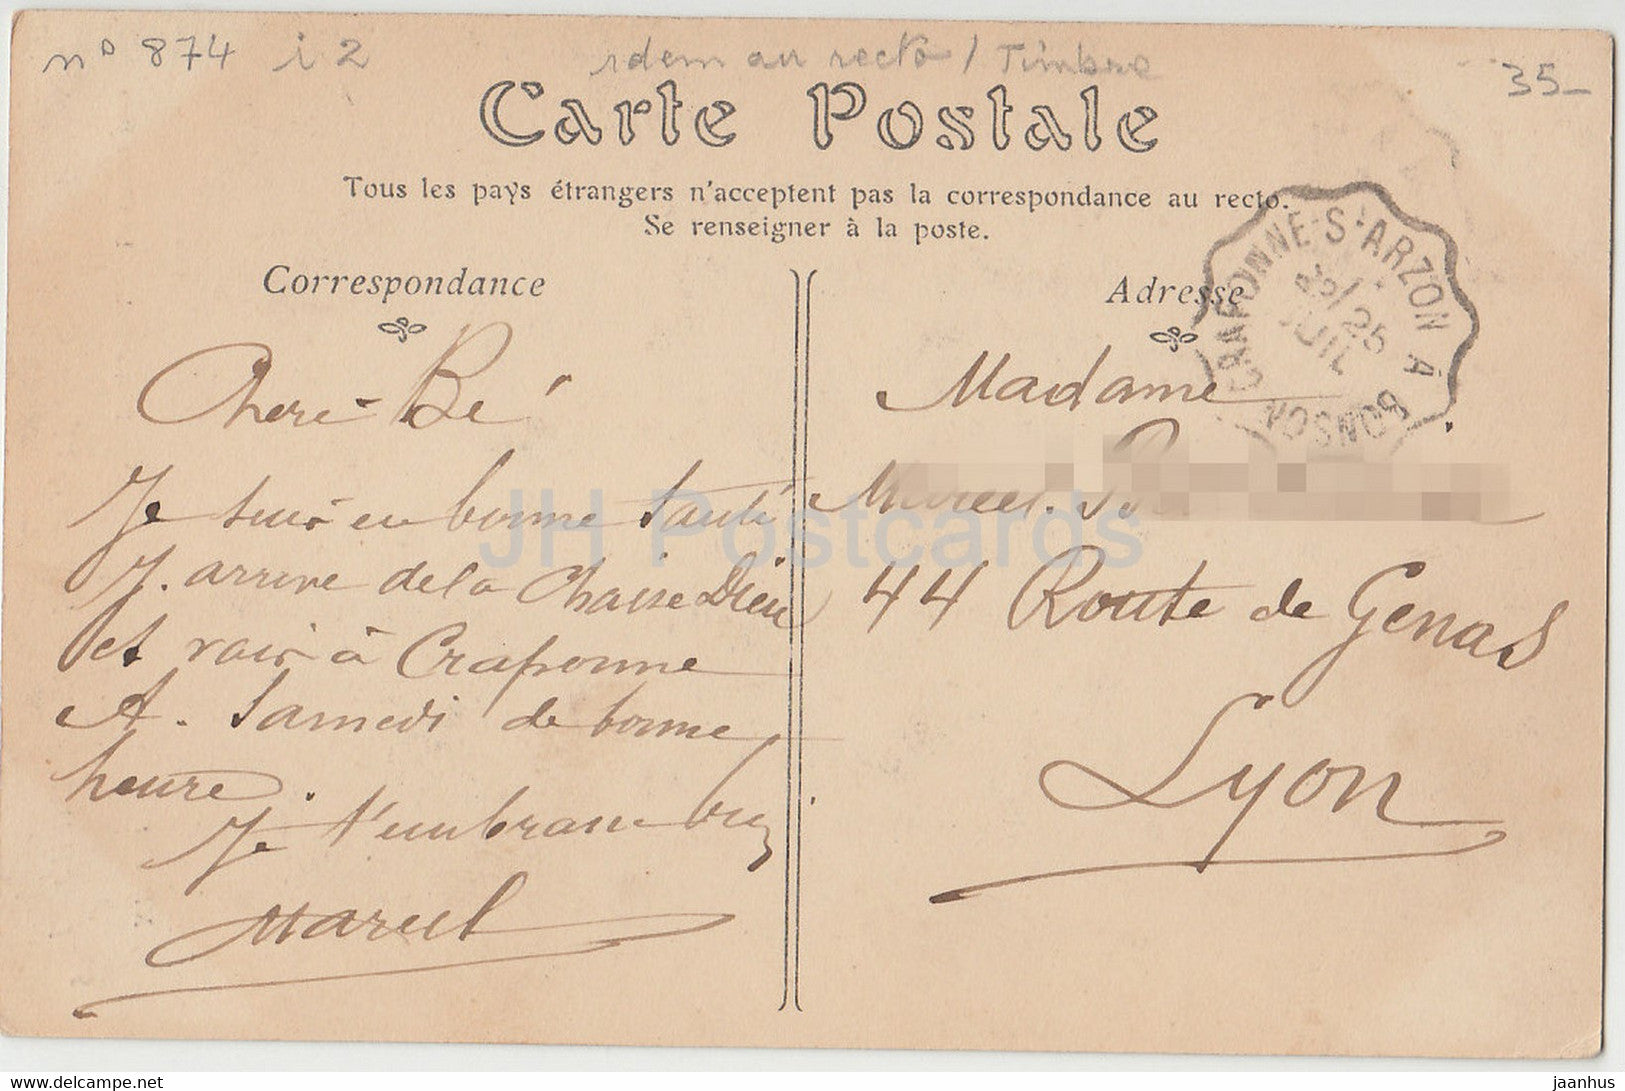 n° 874 i 2 idem au recto / Timbre 35-
Carte Postale
Tous les pays étrangers n'acceptent pas la correspondance au recto.
Se renseigner à la poste.
CRAPONNE-S-ARZON À BONSON
22/25
JUIL
Correspondance
Chere Bé
Je suis en bonne Santé
J. arrive de la Chaise Dieu
et vais à Craponne
A. Samedi de bonne
heure.
Je t'embrasse bien
Marcel
Adresse
Madame
Marcel.
44 Route de Genas
Lyon
JH Postcards
jaanhus
www.delcampe.net